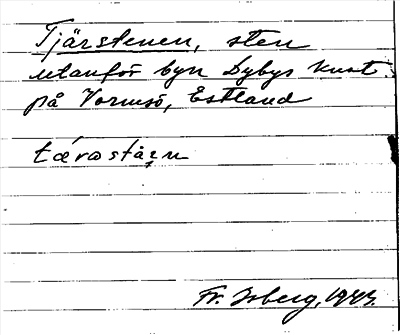 Tjärstenen, sten
utanför byn Dybys kust
på Vormsö, Estland
tærastäɪn
Fr. Isberg, 1943.